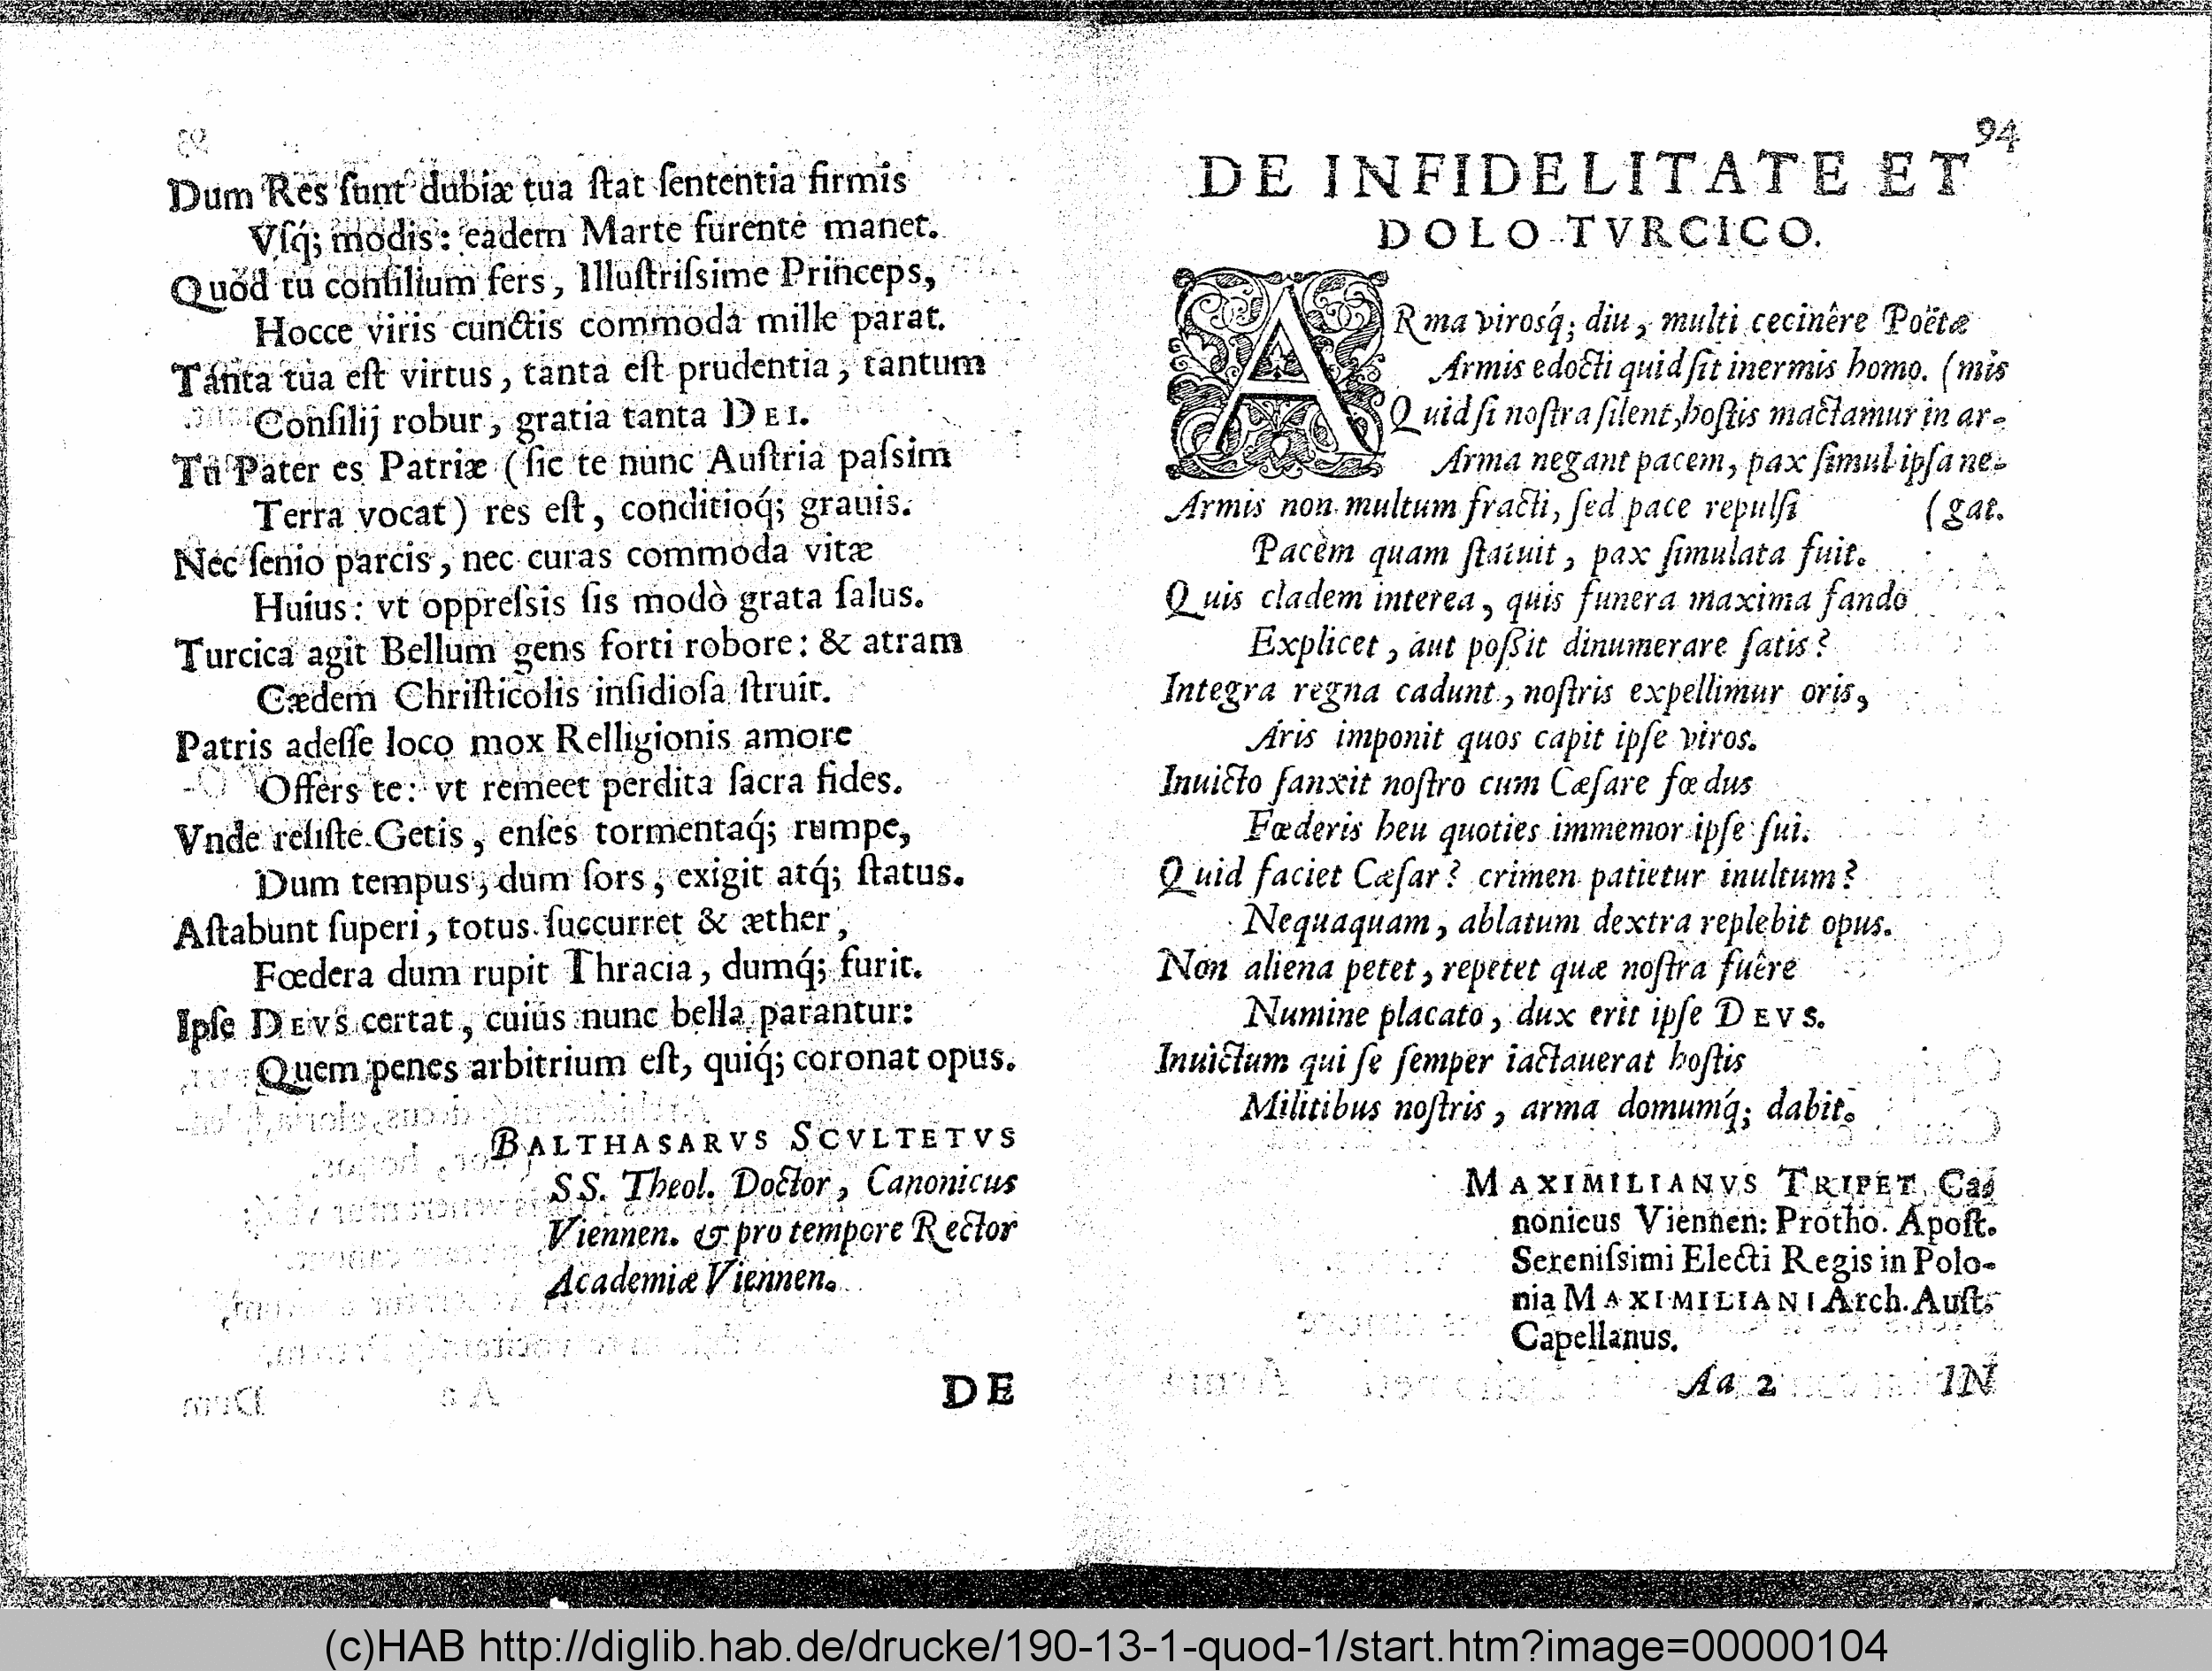 Dum Res ſunt dubiæ tua ſtat ſententia firmis
Vſq́; modis: eadem Marte furente manet.
Quod tu conſilium fers, Illuſtriſsime Princeps,
Hocce viris cunctis commoda mille parat.
Tanta tua eſt virtus, tanta eſt prudentia, tantum
Conſilij robur, gratia tanta DEI.
Tu Pater es Patriæ (ſic te nunc Auſtria paſsim
Terra vocat) res eſt, conditioq́; grauis.
Nec ſenio parcis, nec curas commoda vitæ
Huius: vt oppreſsis ſis modò grata ſalus.
Turcica agit Bellum gens forti robore: & atram
Cædem Chriſticolis inſidioſa ſtruit.
Patris adeſſe loco mox Relligionis amore
Offers te: vt remeet perdita ſacra fides.
Vnde reſiſte Getis, enſes tormentaq́; rumpe,
Dum tempus, dum ſors, exigit atq́; ſtatus.
Aſtabunt ſuperi, totus ſuccurret & æther,
Fœdera dum rupit Thracia, dumq́; furit.
Ipſe DEVS certat, cuius nunc bella parantur:
Quem penes arbitrium eſt, quiq́; coronat opus.
BALTHASARVS SCVLTETVS
SS. Theol. Doctor, Canonicus
Viennen. & pro tempore Rector
Academiæ Viennen.
DE
94
DE INFIDELITATE ET
DOLO TVRCICO.
ARma virosq́; diu, multi cecinêre Poëtæ
Armis edocti quid ſit inermis homo. (mis
Quid ſi noſtra ſilent, hoſtis mactamur in ar-
Arma negant pacem, pax ſimul ipſa ne-
Armis non multum fracti, ſed pace repulſi (gat.
Pacem quam ſtatuit, pax ſimulata fuit.
Quis cladem interea, quis funera maxima fando
Explicet, aut poßit dinumerare ſatis?
Integra regna cadunt, noſtris expellimur oris,
Aris imponit quos capit ipſe viros.
Inuicto ſanxit noſtro cum Cæſare fœdus
Fœderis heu quoties immemor ipſe ſui.
Quid faciet Cæſar? crimen patietur inultum?
Nequaquam, ablatum dextra replebit opus.
Non aliena petet, repetet quæ noſtra fuêre
Numine placato, dux erit ipſe DEVS.
Inuictum qui ſe ſemper iactauerat hoſtis
Militibus noſtris, arma domumq́; dabit.
MAXIMILIANVS TRIPET Ca-
nonicus Viennen: Protho. Apoſt.
Sereniſsimi Electi Regis in Polo-
nia MAXIMILIANI Arch. Auſt.
Capellanus.
Aa 2
IN
(c)HAB http://diglib.hab.de/drucke/190-13-1-quod-1/start.htm?image=00000104